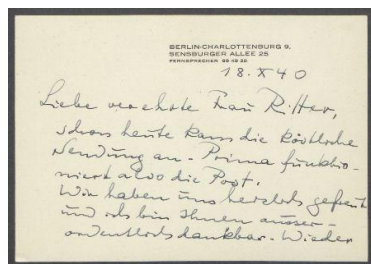 BERLIN-CHARLOTTENBURG 9,
SENSBURGER ALLEE 25
FERNSPRECHER
18.X40
Liebe verehrte Frau Ritter,
schon heute kam die köstliche
Sendung an. Prima funktio-
niert also die Post.
Wir haben uns herzlich gefreut
und ich bin Ihnen ausser-
ordentlich dankbar. Wieder